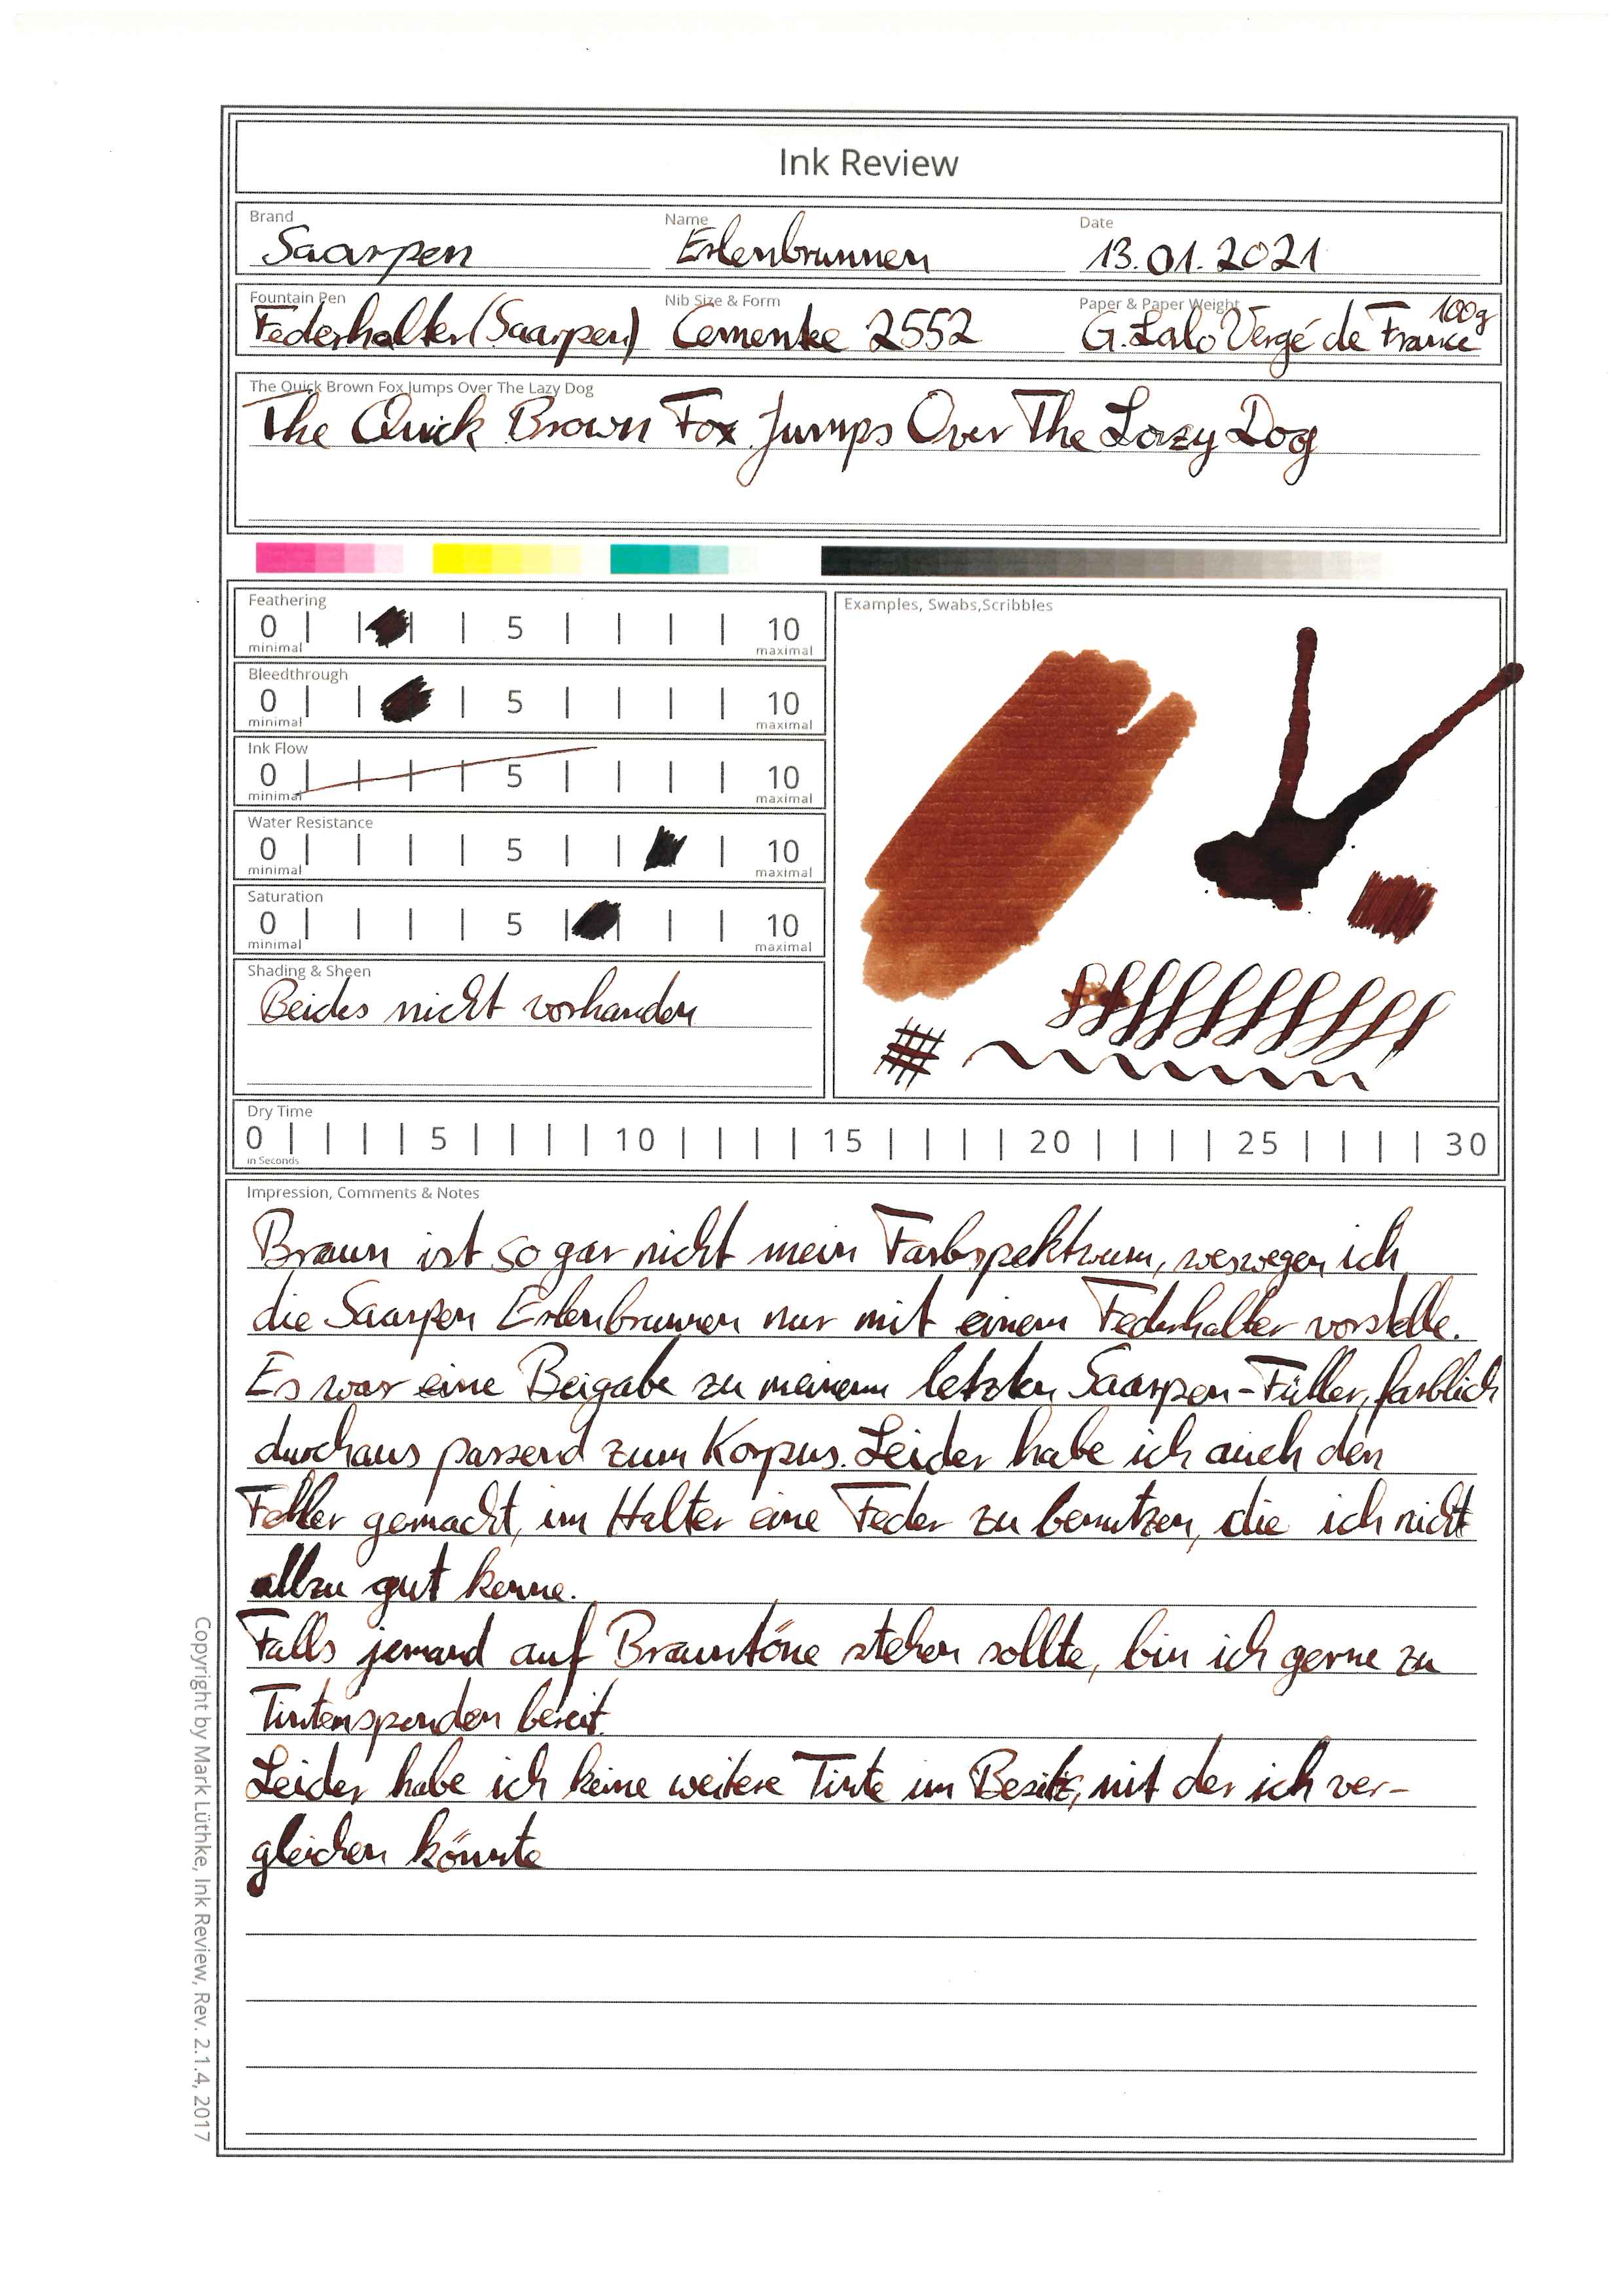 Ink Review
Brand Name Date
Saarpen Erlenbrunnen 13.01.2021
Fountain Pen Nib Size & Form Paper & Paper Weight
Federhalter (Saarpen) 2552 G. Lalo Vergé de France 100g
The Quick Brown Fox Jumps Over The Lazy Dog
The Quick Brown Fox Jumps Over The Lazy Dog
Feathering
0 5 10
minimal maximal
Bleedthrough
0 5 10
minimal maximal
Ink Flow
0 5 10
minimal maximal
Water Resistance
0 5 10
minimal maximal
Saturation
0 5 10
minimal maximal
Shading & Sheen
Beides nicht vorhanden
Examples, Swabs,Scribbles
Dry Time
0 5 10 15 20 25 30
in Seconds
Impression, Comments & Notes
Braun ist so gar nicht mein Farbspektrum, weswegen ich
die Saarpen Erlenbrunnen nur mit einem Federhalter vorstelle.
Es war eine Beigabe zu meinem letzten Saarpen-Füller, farblich
durchaus passend zum Korpus. Leider habe ich auch den
Fehler gemacht, im Halter eine Feder zu benutzen, die ich nicht
allzu gut kenne.
Falls jemand auf Brauntöne stehen sollte, bin ich gerne zu
Tintenspenden bereit.
Leider habe ich keine weitere Tinte im Besitz, mit der ich ver-
gleichen könnte
Copyright by Mark Lüthke, Ink Review, Rev. 2.1.4, 2017